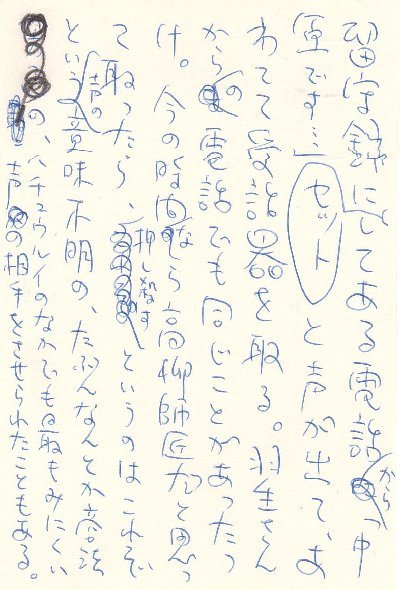 留守録にしてある電話から「中
です…」セットと声が出て、あ
わてて受話器を取る。羽生さん
からの電話でも同じことがあったっ
け。今の時間なら高柳師匠だと思っ
て取ったら、押し殺すというのはこれぞ
という声の意味不明の、たぶんなんとか商法
の、ハチュウルイのなかでも最もみにくい声の相手をさせられたこともある。